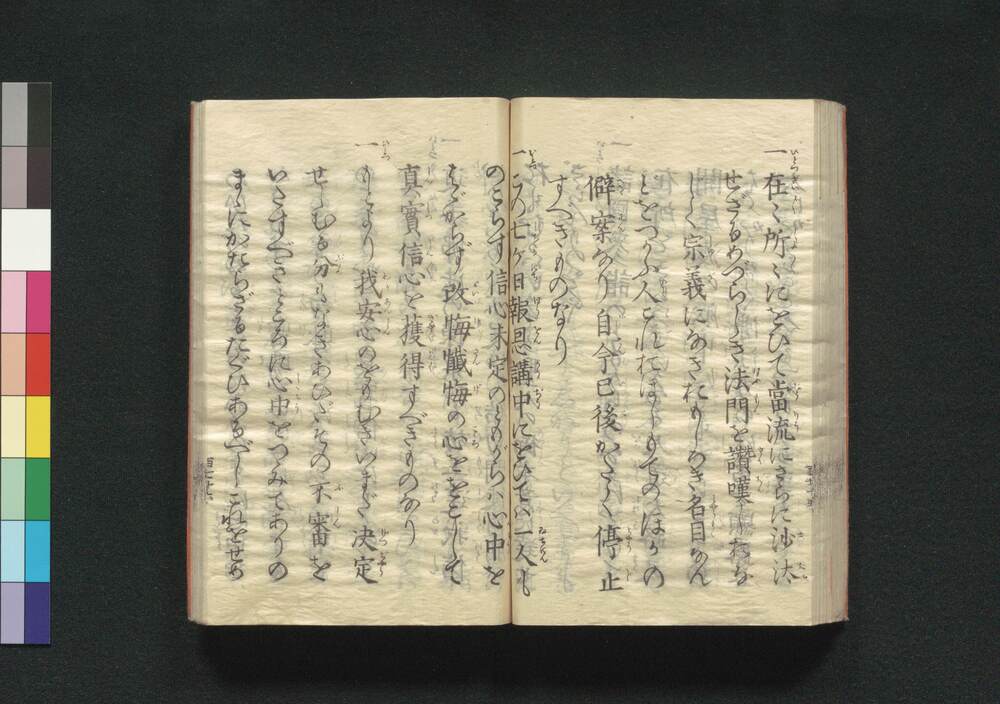 一在々所々にをひて當流にさらに沙汰
せざるめづらしき法門を讃嘆しおな
じく宗義になきおもしろき名目なん
どをつかふ人これおほしもてのほかの
僻案なり自今已後かたく停止
すべきものなり
一この七ケ日報恩講中にをひては一人も
のこらず信心未定のともがらは心中を
はゞからず改悔懺悔の心ををこして
真實信心を獲得すべきものなり
一もとより我安心のをもむきいまだ決定
せしむる分もなきあひだその不審を
いたすべきところに心中をつゝみてありの
まゝにかたらざるたぐひあるべしこれをせめ